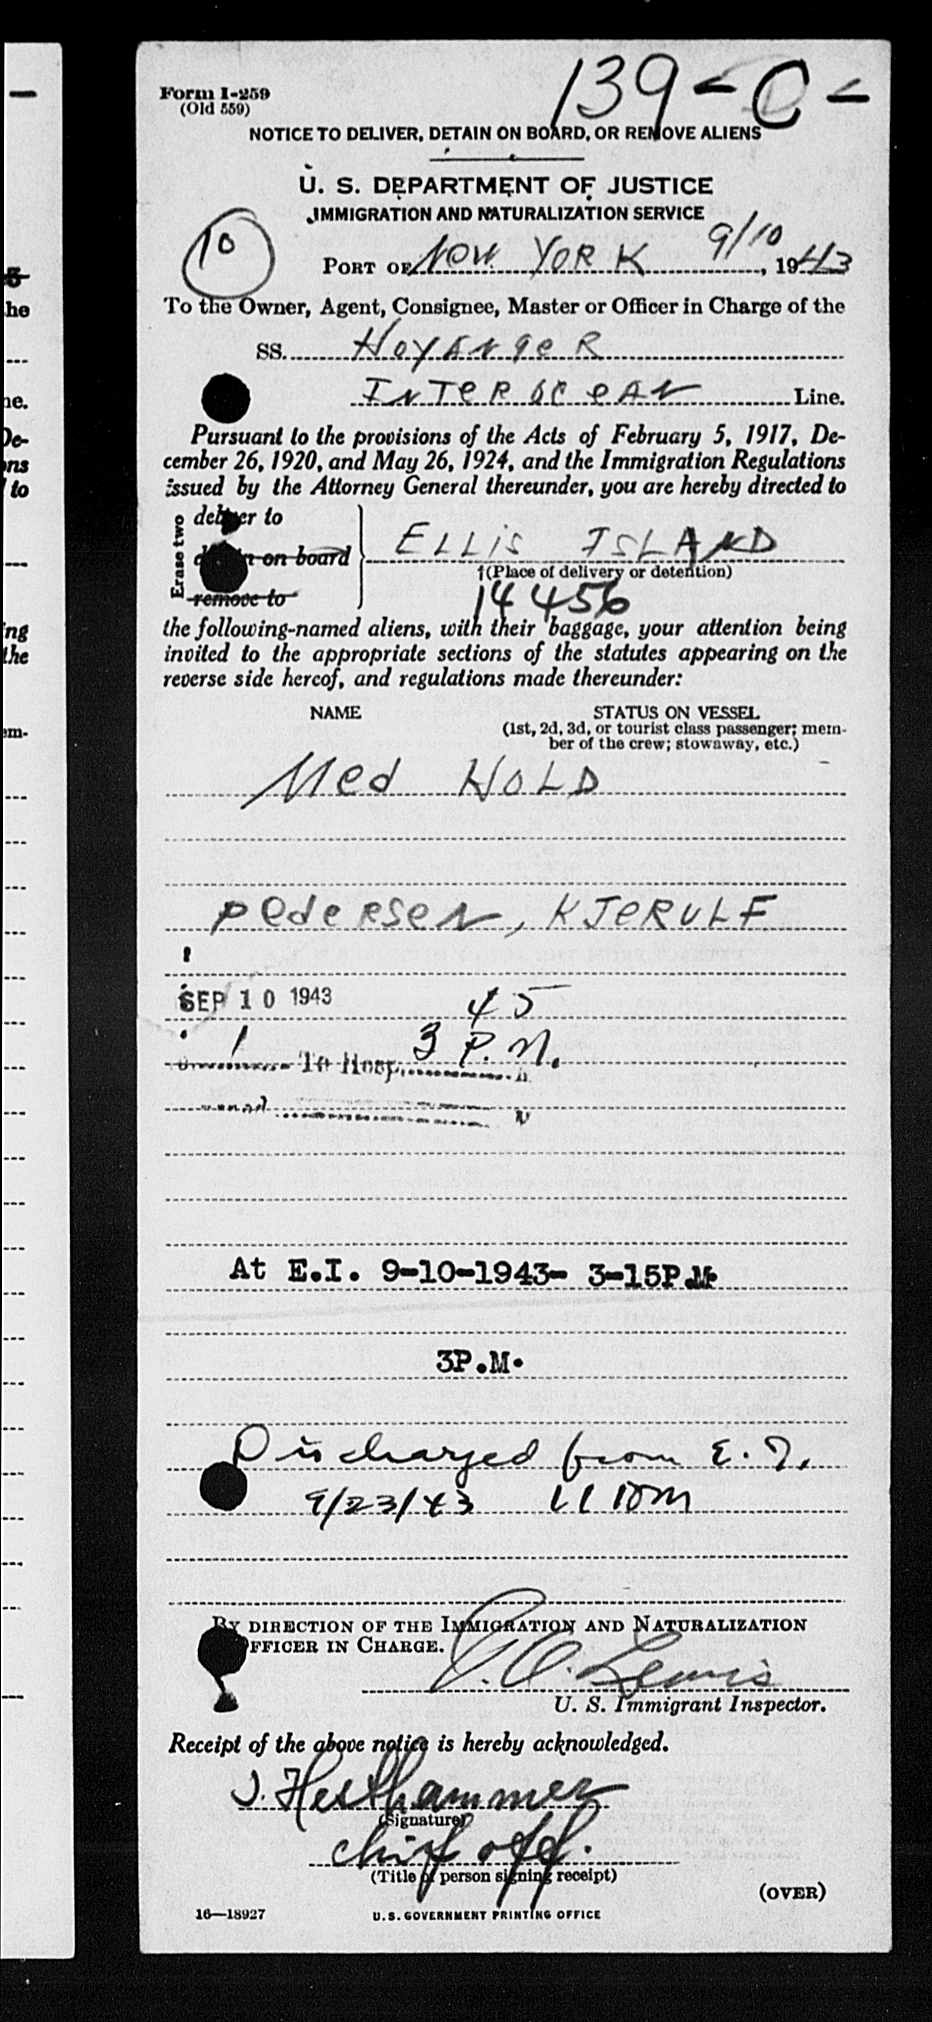 139-C-
Form I-259
(Old 559)
NOTICE TO DELIVER, DETAIN ON BOARD, OR REMOVE ALIENS
U. S. DEPARTMENT OF JUSTICE
IMMIGRATION AND NATURALIZATION SERVICE
10
PORT OF NEW YORK 9/10, 1943
To the Owner, Agent, Consignee, Master or Officer in Charge of the
SS. HOYANGER
INTEROCEAN Line.
Pursuant to the provisions of the Acts of February 5, 1917, De-
cember 26, 1920, and May 26, 1924, and the Immigration Regulations
issued by the Attorney General thereunder, you are hereby directed to
Erase two
deliver to
detain on board
remove to
ELLIS ISLAND
†(Place of delivery or detention)
14456
the following-named aliens, with their baggage, your attention being
invited to the appropriate sections of the statutes appearing on the
reverse side hereof, and regulations made thereunder:
NAME
STATUS ON VESSEL
(1st, 2d, 3d, or tourist class passenger; mem-
ber of the crew; stowaway, etc.)
Med HOLD
PEDERSEN, KJERULF
SEP 10 1943
45
1 To Hosp. 3 P.M.
At E.I. 9-10-1943- 3-15P.M.
3P.M.
Discharged from E.I.
9/23/43 11
BY DIRECTION OF THE IMMIGRATION AND NATURALIZATION
OFFICER IN CHARGE.
Lewis
U. S. Immigrant Inspector.
Receipt of the above notice is hereby acknowledged.
J. Hesthammer
(Signature)
chief off.
(Title of person signing receipt)
(OVER)
16—18927
U.S. GOVERNMENT PRINTING OFFICE